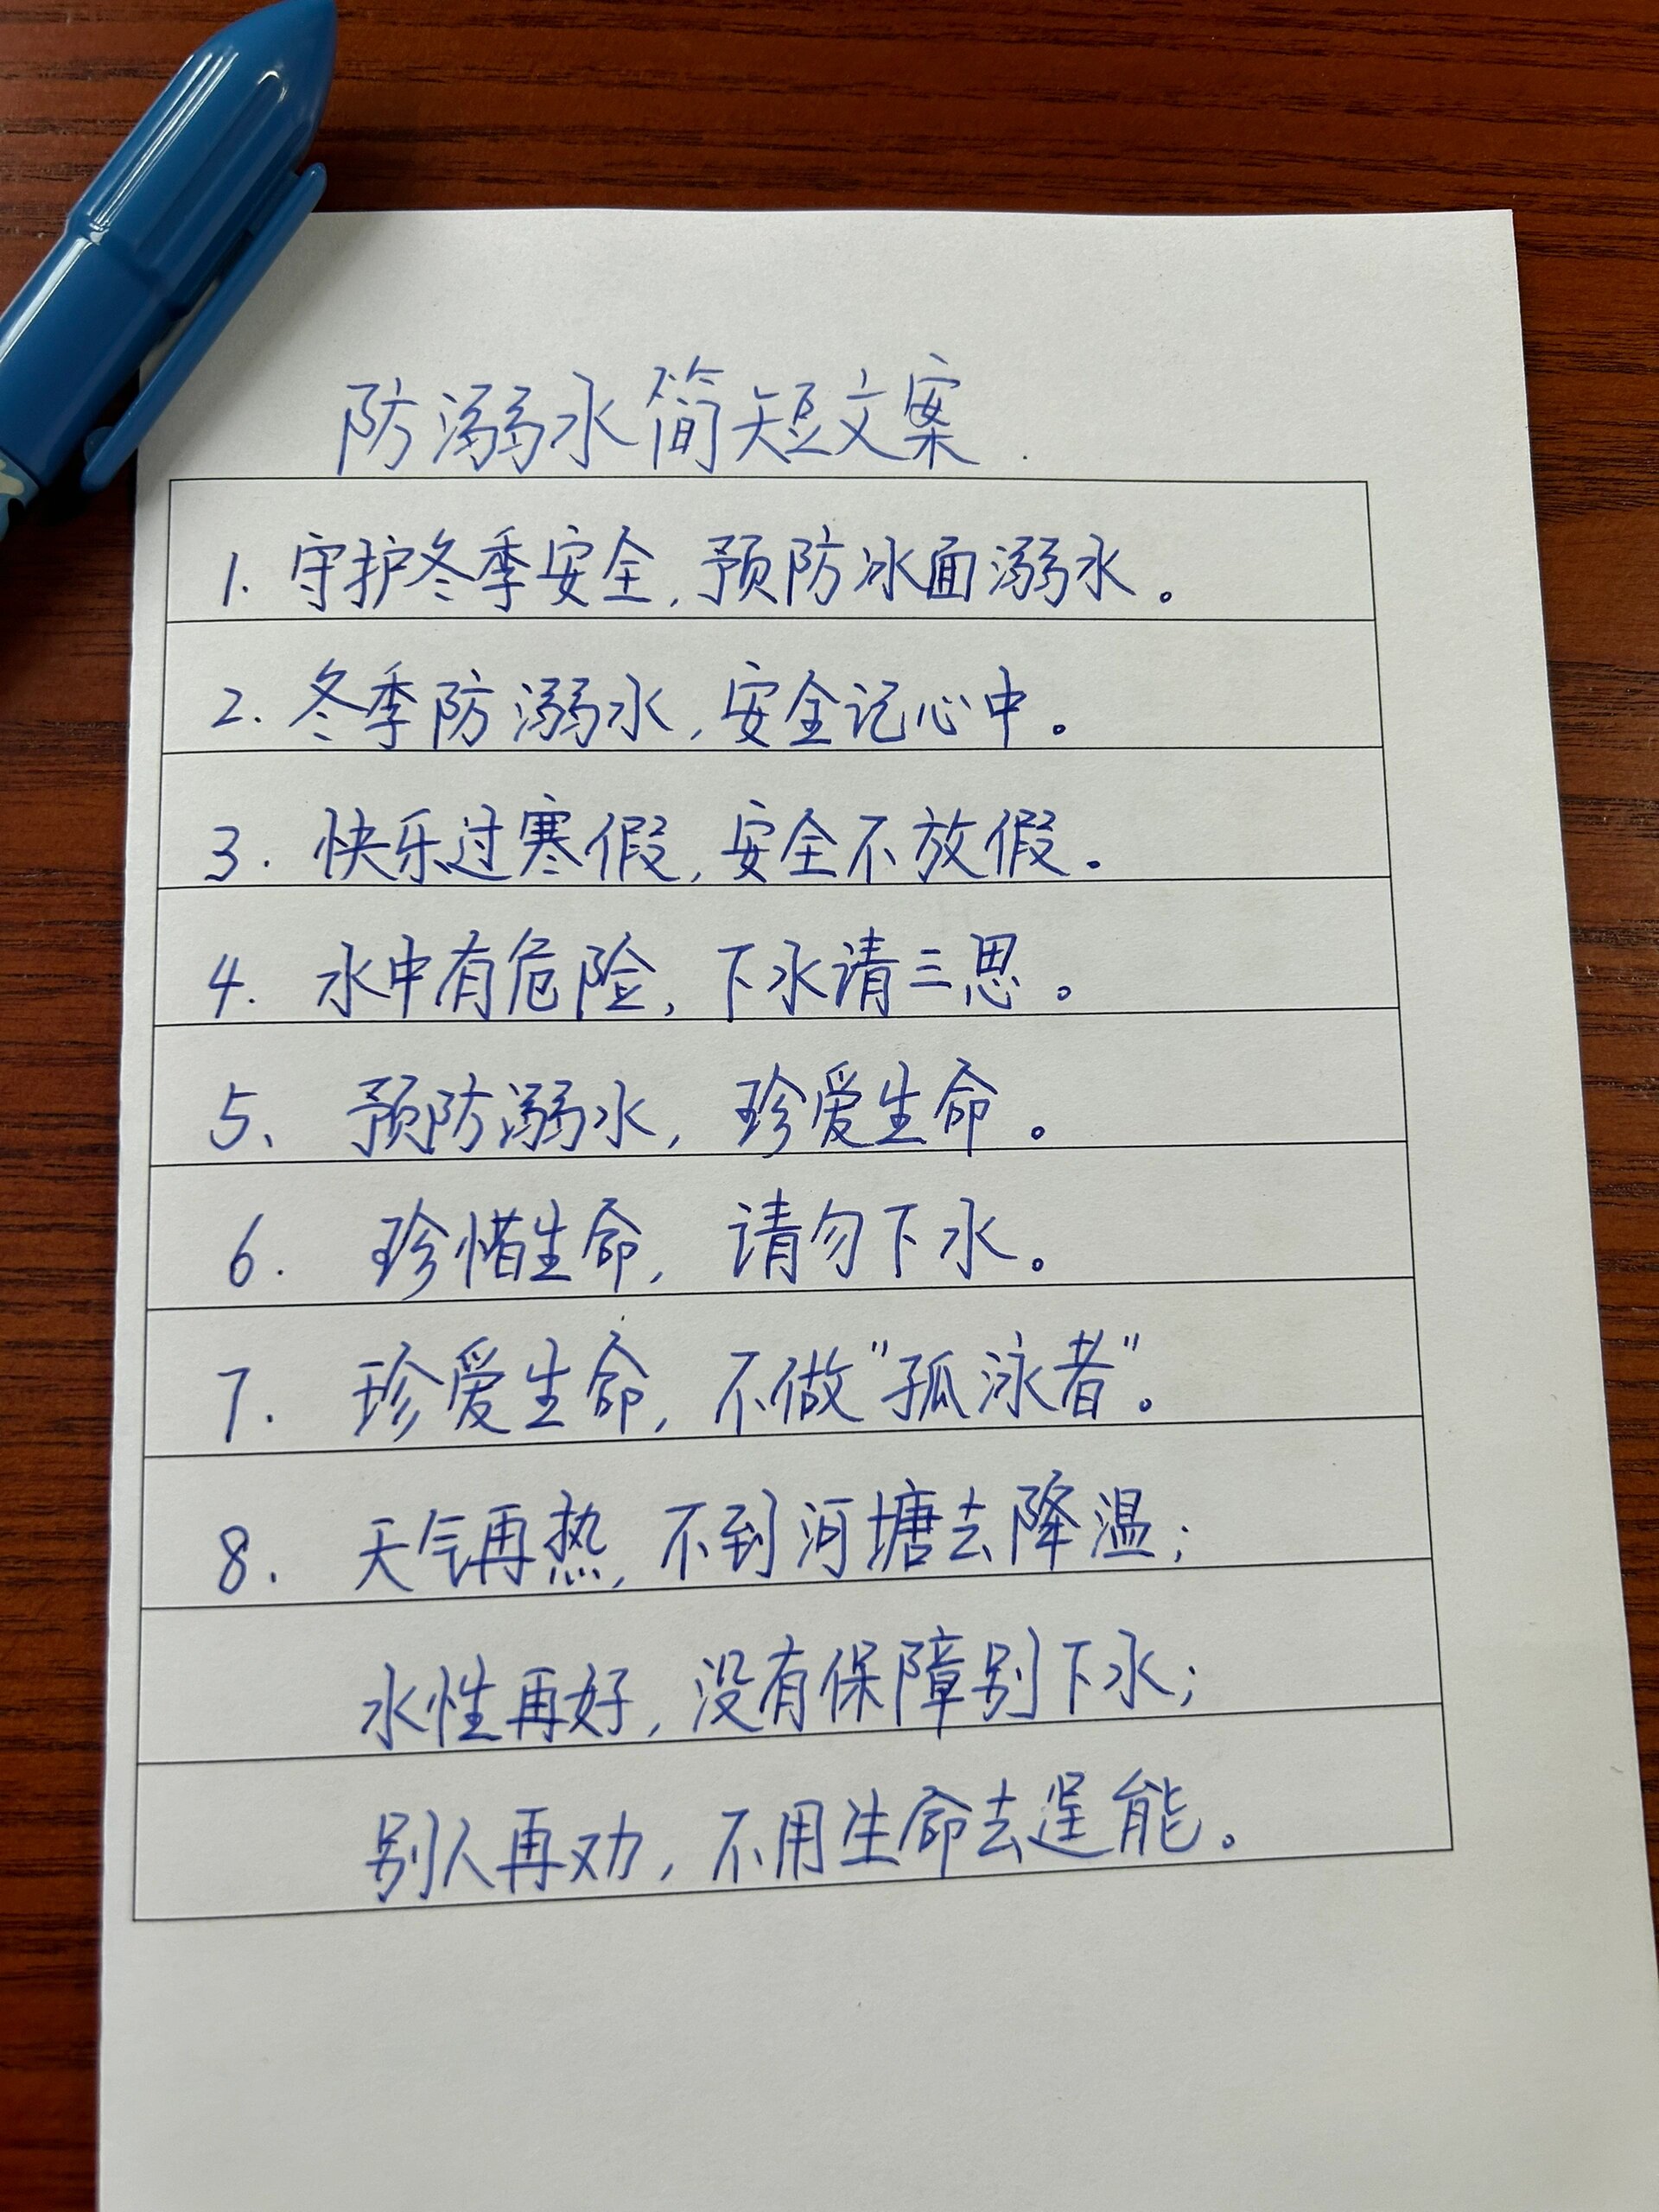 防溺水简短文案.
1. 守护冬季安全,预防冰面溺水。
2. 冬季防溺水,安全记心中。
3. 快乐过寒假,安全不放假。
4. 水中有危险,下水请三思。
5、预防溺水,珍爱生命。
6. 珍惜生命,请勿下水。
7. 珍爱生命,不做"孤泳者"。
8. 天气再热,不到河塘去降温;
水性再好,没有保障别下水;
别人再劝,不用生命去逞能。